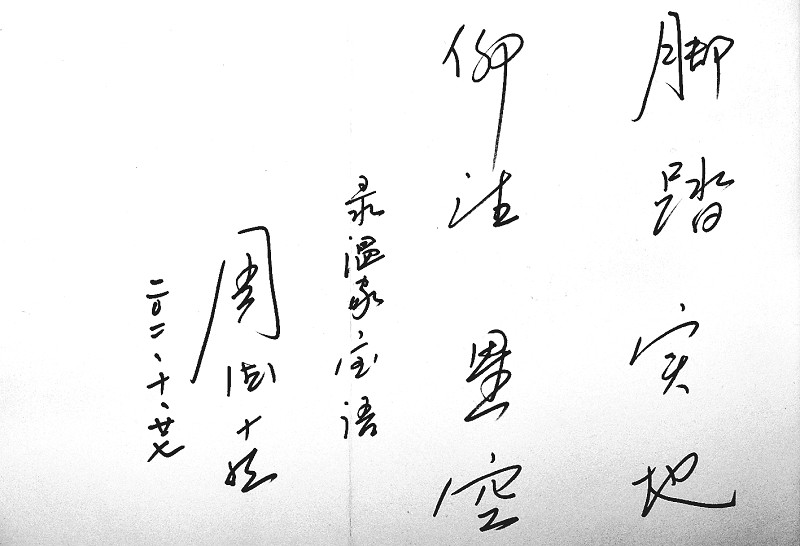 脚踏实地
仰望星空
录温家宝语
周
二〇一一、十、廿七